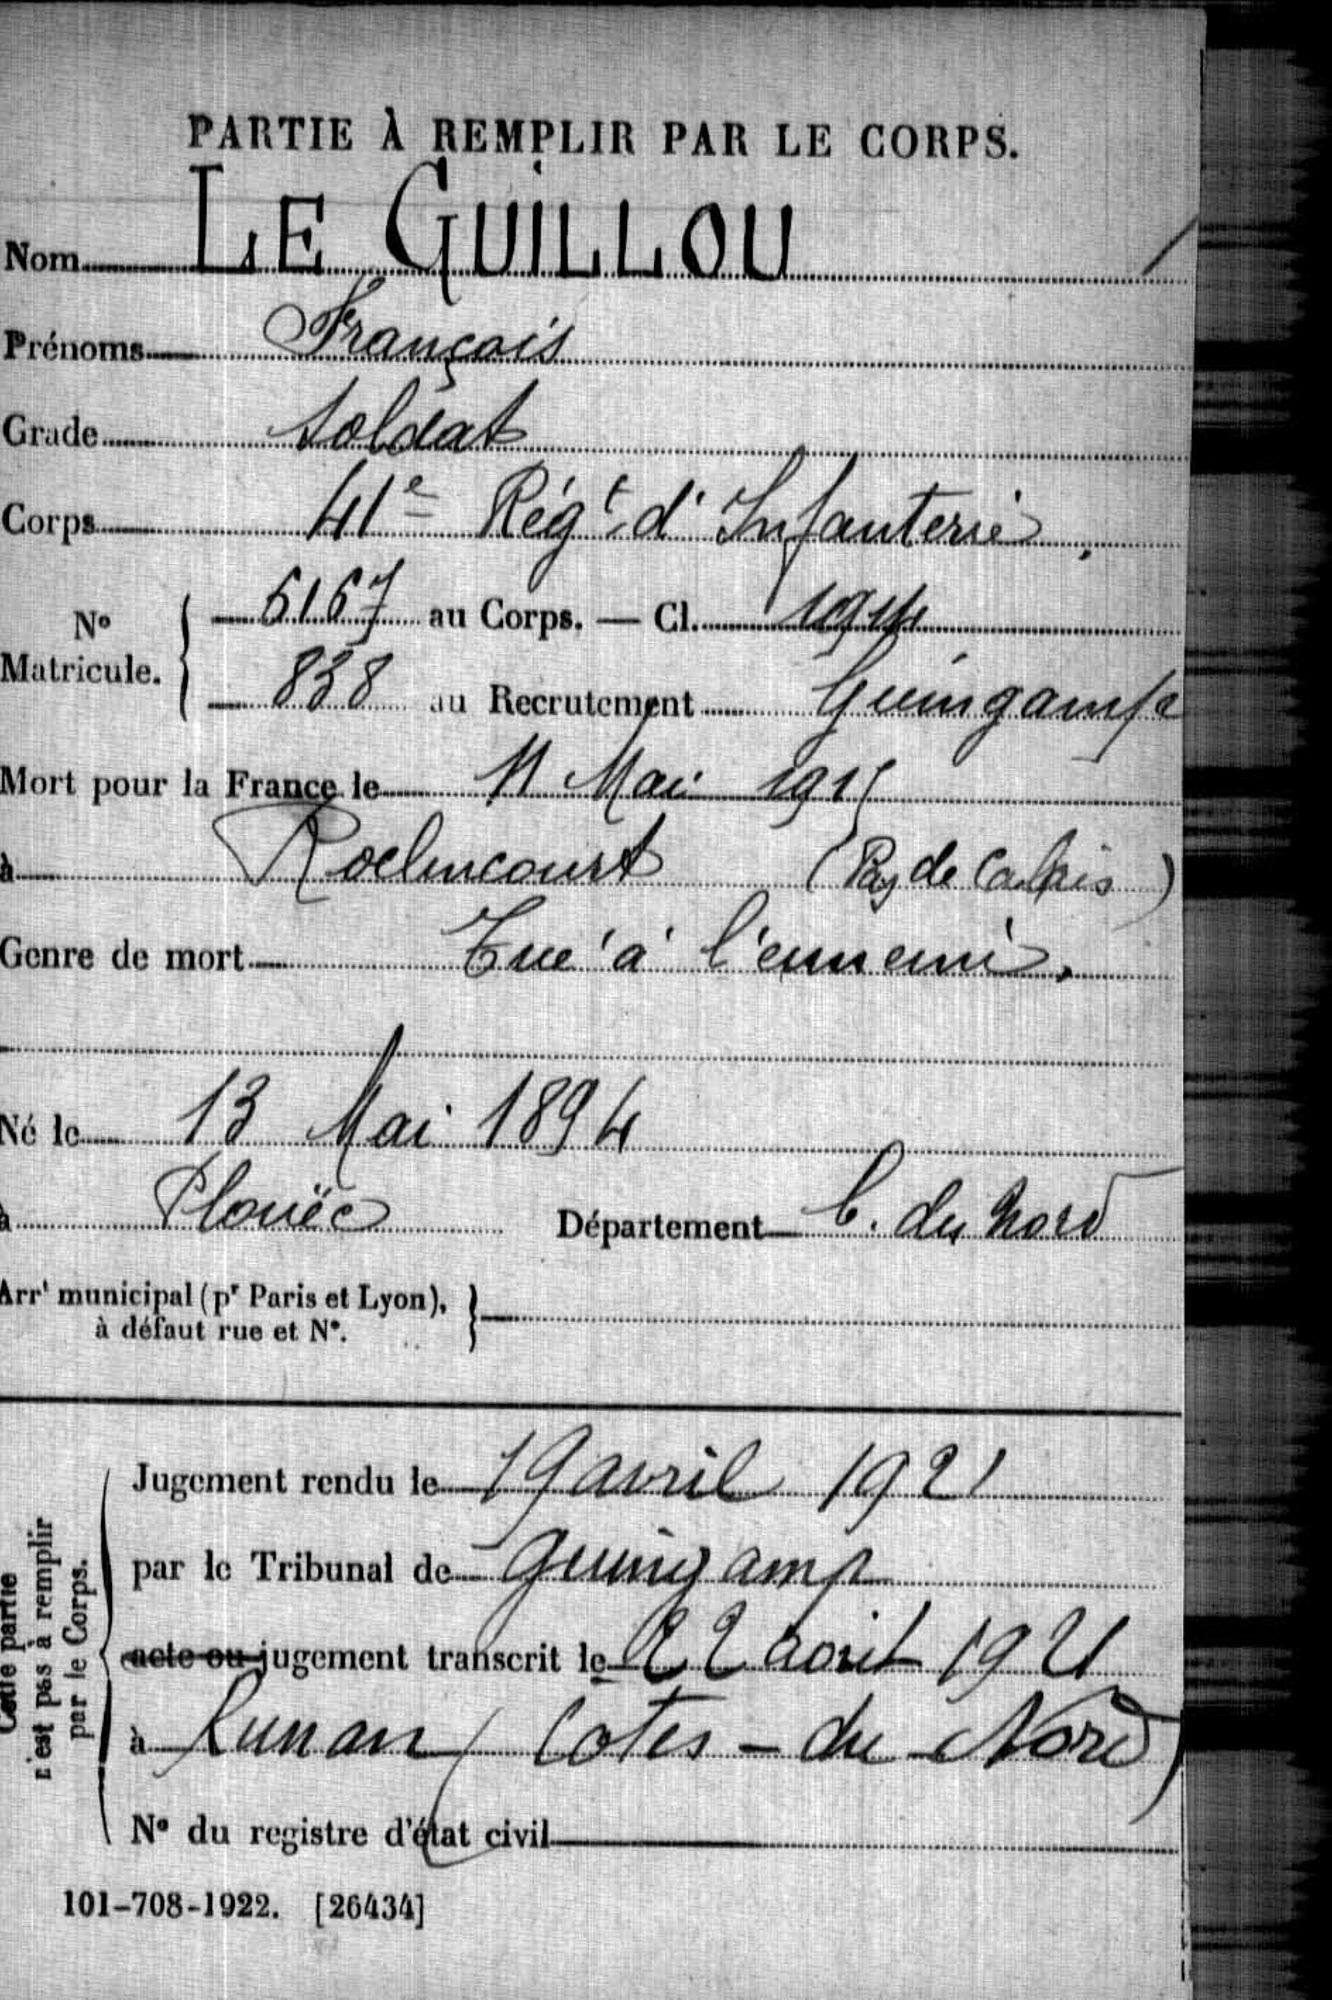 PARTIE À REMPLIR PAR LE CORPS.
Nom LE GUILLOU
Prénoms François
Grade Soldat
Corps 41e Régt d'Infanterie.
No Matricule. { 5167 au Corps. — Cl. 1914
838 au Recrutement Guingamp
Mort pour la France le 11 Mai 1915
à Roclincourt (Pas de Calais)
Genre de mort Tué à l'ennemi.
Né le 13 Mai 1894
à Plouëc Département C. du Nord
Arrt municipal (pr Paris et Lyon), }
à défaut rue et No.
Cette partie n'est pas à remplir par le Corps.
Jugement rendu le 19 avril 1921
par le Tribunal de Guingamp
acte ou jugement transcrit le 22 août 1921
à Runan (Cotes-du-Nord)
No du registre d'état civil
101-708-1922. [26434]